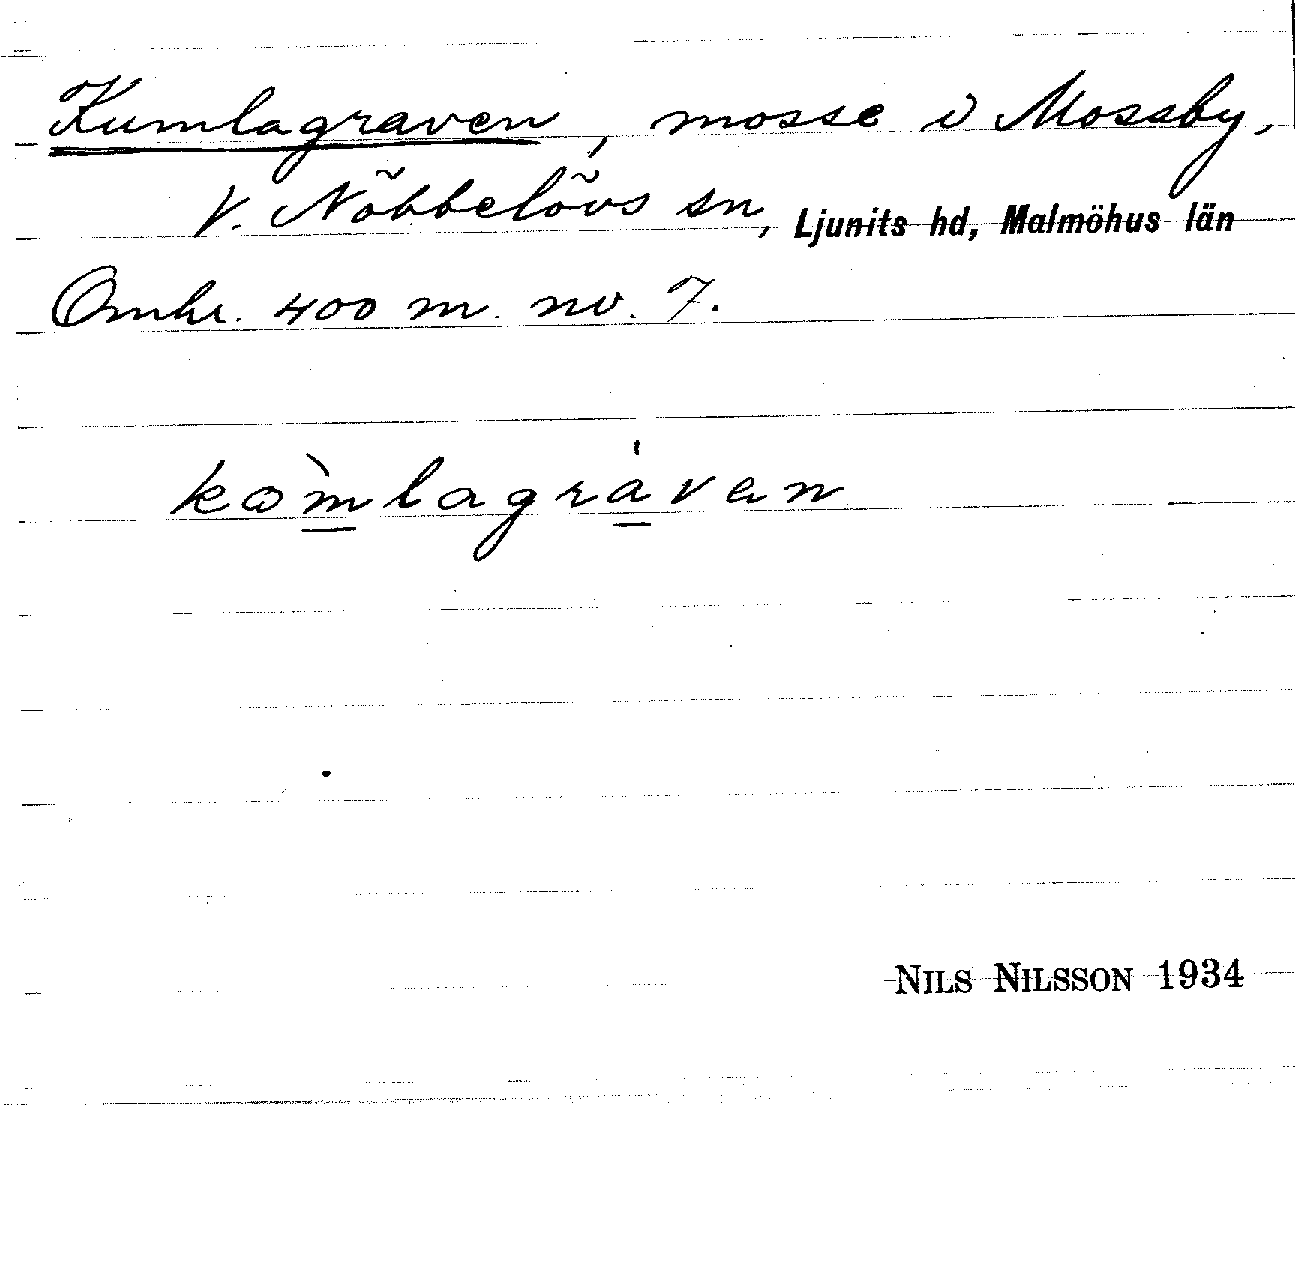 Kumlagraven, mosse i Mossby,
V. Nöbbelövs sn, Ljunits hd, Malmöhus län
Omkr. 400 m. nv. 7.
kòmlagráven
NILS NILSSON 1934